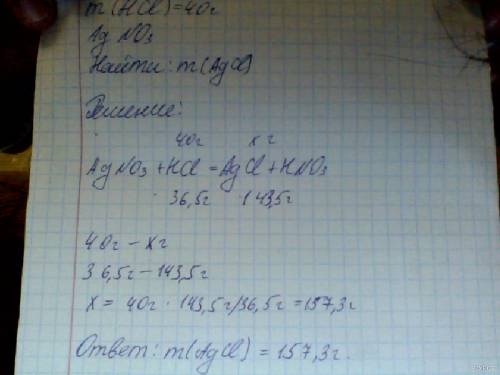 m(HCl)=40г
AgNO₃
Найти: m(AgCl)
Решение:
40г xг
AgNO₃ + HCl = AgCl + HNO₃
36,5г 143,5г
40г – xг
36,5г – 143,5г
x = 40г · 143,5г/36,5г = 157,3г
Ответ: m(AgCl) = 157,3г.